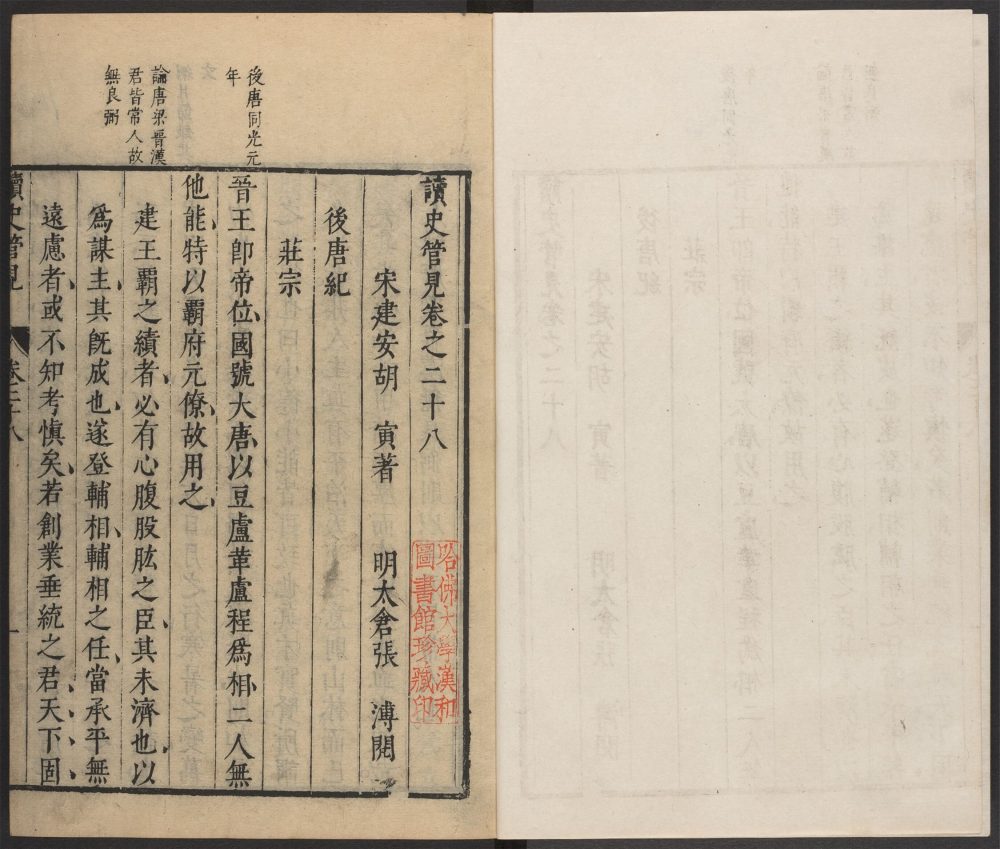 讀史管見卷之二十八
宋建安胡　寅著　明太倉張　溥閱
哈佛大學漢和
圖書館珍藏印
後唐紀
莊宗
後唐同光元
年
晉王卽帝位國號大唐以豆盧革盧程爲相二人無
他能特以霸府元僚故用之
論唐梁晉漢
君皆常人故
無良弼
建王霸之績者必有心腹股肱之臣其未濟也以
爲謀主其旣成也遂登輔相輔相之任當承平無
遠慮者或不知考慎矣若創業垂統之君天下固
讀史管見　卷二十八　一